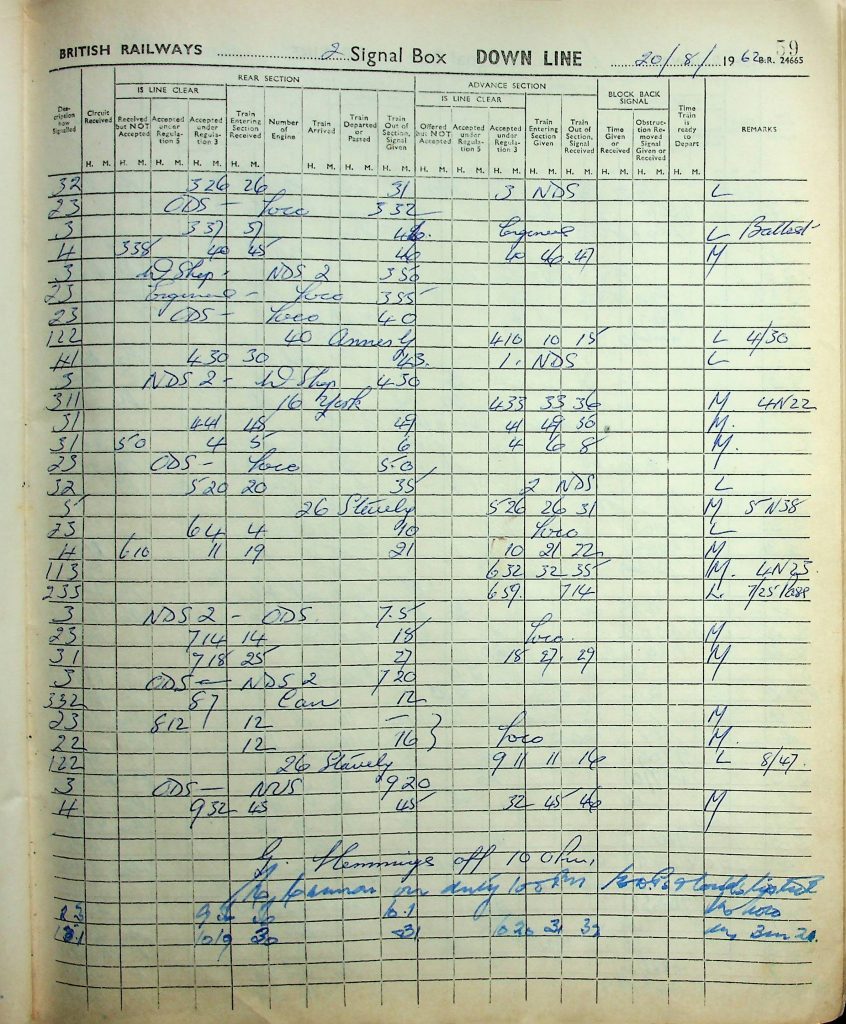 59
BRITISH RAILWAYS 2 Signal Box DOWN LINE 20/8/ 1962 B.R. 24665
REAR SECTION ADVANCE SECTION
IS LINE CLEAR IS LINE CLEAR BLOCK BACK SIGNAL
Description how Signalled
Circuit Received
Received but NOT Accepted
Accepted under Regulation 5
Accepted under Regulation 3
Train Entering Section Received
Number of Engine
Train Arrived
Train Departed or Passed
Train Out of Section, Signal Given
Offered but NOT Accepted
Accepted under Regulation 5
Accepted under Regulation 3
Train Entering Section Given
Train Out of Section, Signal Received
Time Given or Received
Obstruction Removed Signal Given or Received
Time Train is ready to Depart
REMARKS
H. M. H. M. H. M. H. M. H. M. H. M. H. M. H. M. H. M. H. M. H. M. H. M. H. M. H. M. H. M. H. M.
32 326 26 31 3 NDS L
23 ODS - Loco 332
3 337 37 Engineer L Ballast
H 338 40 45 46 40 46 47 M
3 W Shop - NDS 2 350
23 Engineer - Loco 355
23 ODS - Loco 40
122 40 Annes 410 10 15 L 4/30
H1 430 30 43 1. NDS L
3 NDS 2 - W Shop 430
311 16 York 433 33 36 M 4N22
31 441 45 49 41 49 50 M.
31 50 4 5 6 4 6 8 M.
23 ODS - Loco 50
32 520 20 35 2 NDS L
5 26 Stavely 526 26 31 M 5N38
23 64 4 10 Loco L
H 610 11 19 21 10 21 22 M
113 632 32 35 M. 4N25
235 659 714 L. 7/25
3 NDS 2 - ODS 7.5
23 714 14 18 Loco M
31 718 25 27 18 27 29 M
3 ODS - NDS 2 720
332 87 Can 12
23 812 12 - M
22 12 16 } Loco M.
122 26 Stavely 911 11 16 L 8/47
3 ODS - NDS 920
H 932 45 45 32 45 46 M
G. Hemmings off 10 0 Pm
on duty 10 0 Pm
1019 30 31 1020 31